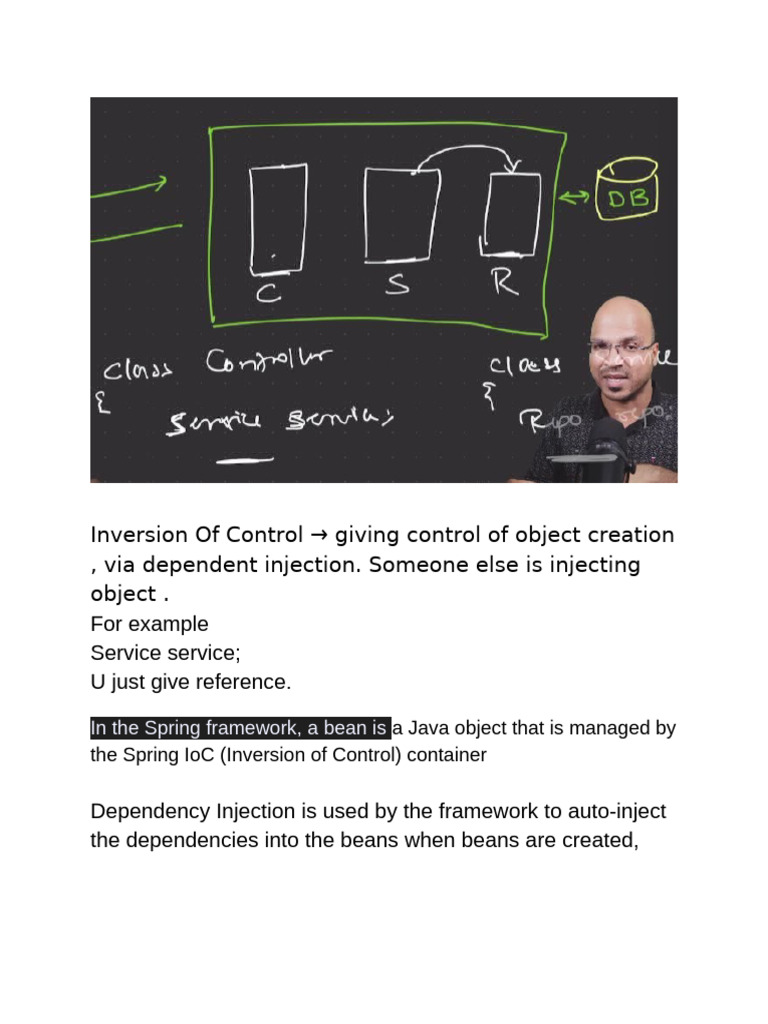 DB
C S R
class Controller class
{ {
Service Service;
Repo repo;
Inversion Of Control → giving control of object creation
, via dependent injection. Someone else is injecting
object .
For example
Service service;
U just give reference.
In the Spring framework, a bean is a Java object that is managed by
the Spring IoC (Inversion of Control) container
Dependency Injection is used by the framework to auto-inject
the dependencies into the beans when beans are created,